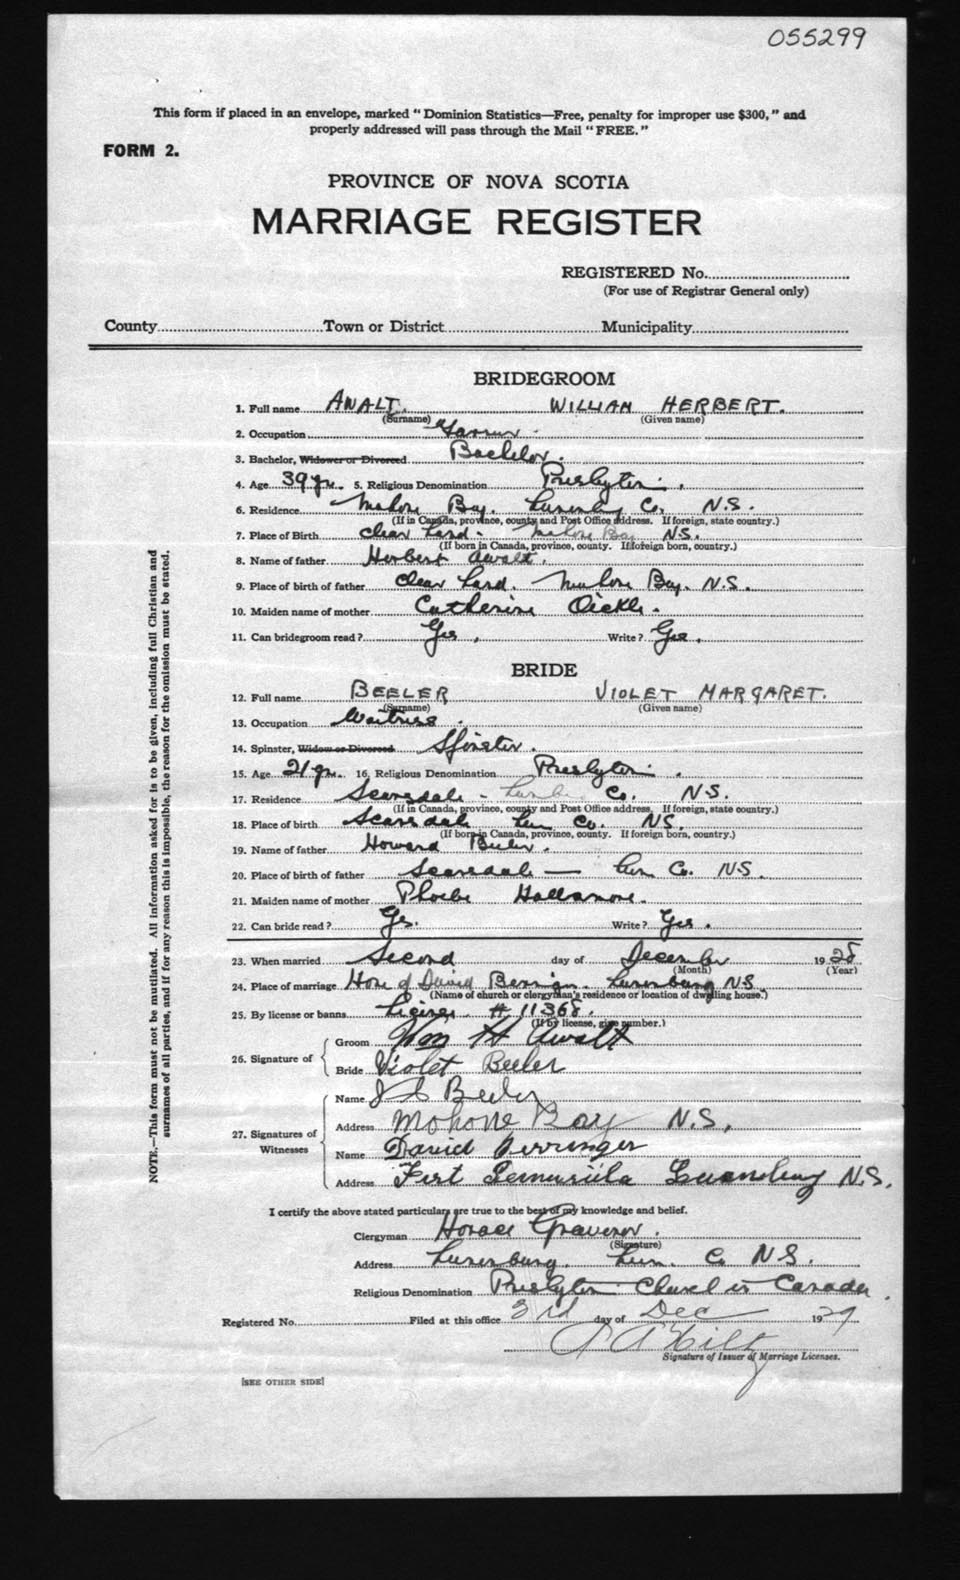 055299
This form if placed in an envelope, marked "Dominion Statistics—Free, penalty for improper use $300," and
properly addressed will pass through the Mail "FREE."
FORM 2.
PROVINCE OF NOVA SCOTIA
MARRIAGE REGISTER
REGISTERED No.
(For use of Registrar General only)
County Town or District Municipality
BRIDEGROOM
1. Full name AWALT. WILLIAM HERBERT.
(Surname) (Given name)
2. Occupation Farmer.
3. Bachelor, Widower or Divorced Bachelor.
4. Age 39 yrs. 5. Religious Denomination Presbyterian.
6. Residence Mahone Bay. Lunenburg Co. N.S.
(If in Canada, province, county and Post Office address. If foreign, state country.)
7. Place of Birth Clear Land. Mahone Bay N.S.
(If born in Canada, province, county. If foreign born, country.)
8. Name of father Herbert Awalt.
9. Place of birth of father Clear Land. Mahone Bay. N.S.
10. Maiden name of mother Catherine Oickle.
11. Can bridegroom read? Yes. Write? Yes.
BRIDE
12. Full name BEELER VIOLET MARGARET.
(Surname) (Given name)
13. Occupation Waitress.
14. Spinster, Widow or Divorced Spinster.
15. Age 21 yrs. 16. Religious Denomination Presbyterian.
17. Residence Scarsdale - Co. N.S.
(If in Canada, province, county and Post Office address. If foreign, state country.)
18. Place of birth Scarsdale Lun Co. N.S.
(If born in Canada, province, county. If foreign born, country.)
19. Name of father Howard Beeler.
20. Place of birth of father Scarsdale — Lun Co. N.S.
21. Maiden name of mother Phoebe
22. Can bride read? Yes. Write? Yes.
23. When married Second day of December 1928
(Month) (Year)
24. Place of marriage Home of David Lunenburg N.S.
(Name of church or clergyman's residence or location of dwelling house.)
25. By license or banns License # 11368.
(If by license, give number.)
26. Signature of Groom Wm H Awalt
Bride Violet Beeler
27. Signatures of Witnesses
Name Beeler
Address Mahone Bay N.S.
Name David
Address N.S.
I certify the above stated particulars are true to the best of my knowledge and belief.
Clergyman Horace
(Signature)
Address Lunenburg. Lun. Co N.S.
Religious Denomination Presbyterian Church in Canada.
Registered No. Filed at this office 3rd day of Dec 1929
Signature of Issuer of Marriage Licenses.
[SEE OTHER SIDE]
NOTE.—This form must not be mutilated. All information asked for is to be given, including full Christian and
surnames of all parties, and if for any reason this is impossible, the reason for the omission must be stated.